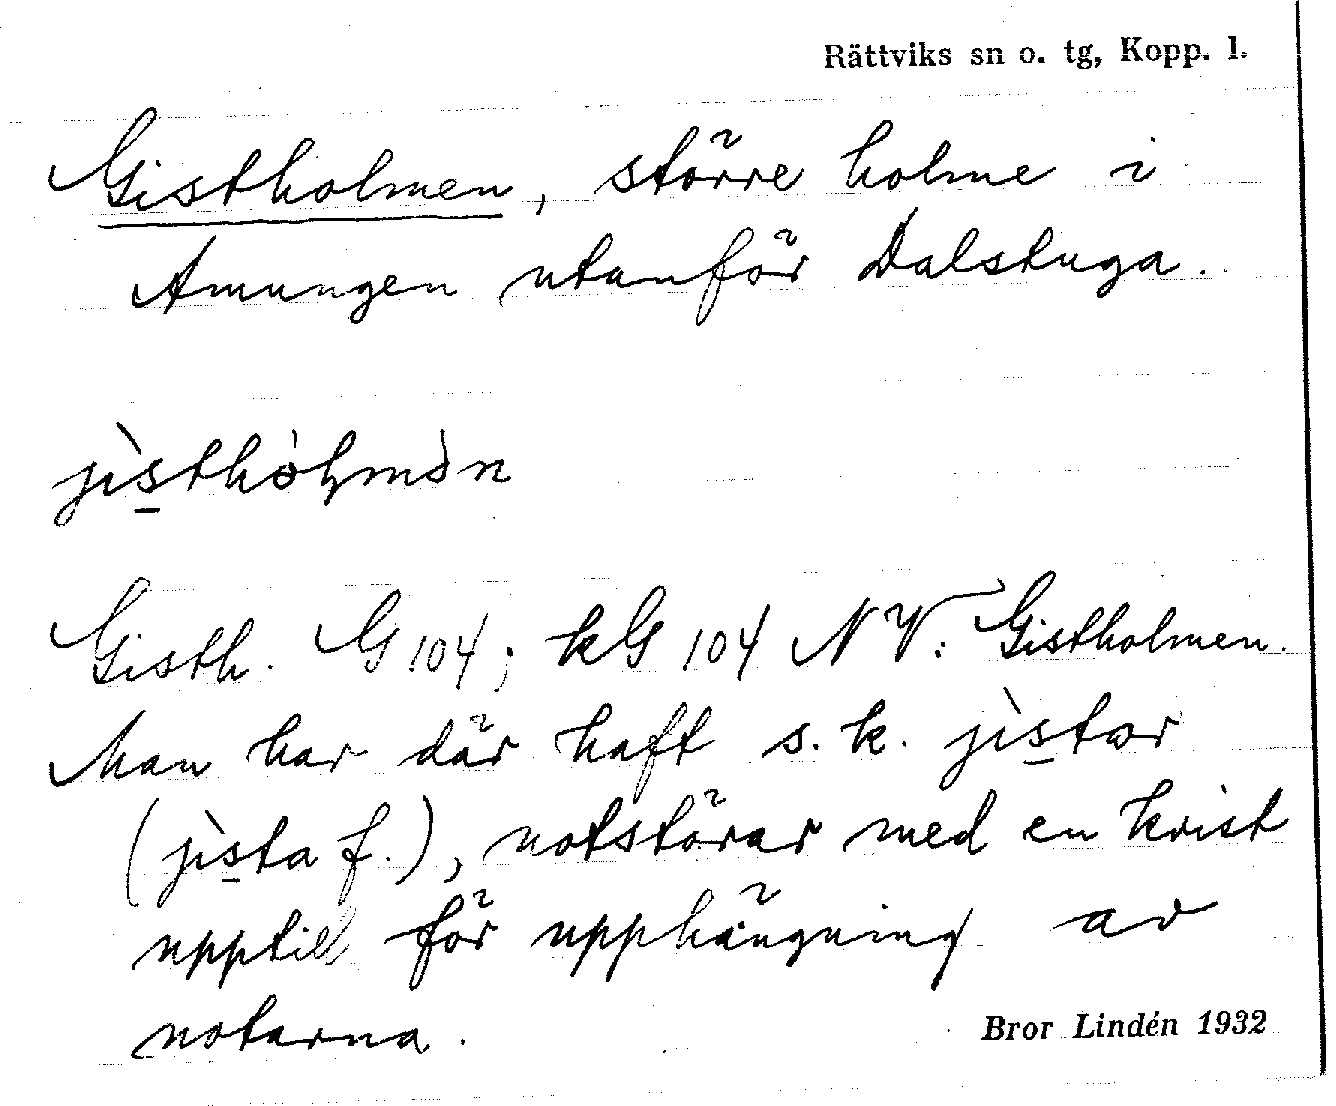 Rättviks sn o. tg, Kopp. l.
Gistholmen, större holme i
Amungen utanför Dalstuga.
Gisth. G 104; kG 104 NV: Gistholmen.
Man har där haft s. k. jìstar
(jìsta f.), notstörar med en krist
upptill för upphängning av
notarna.
Bror Lindén 1932